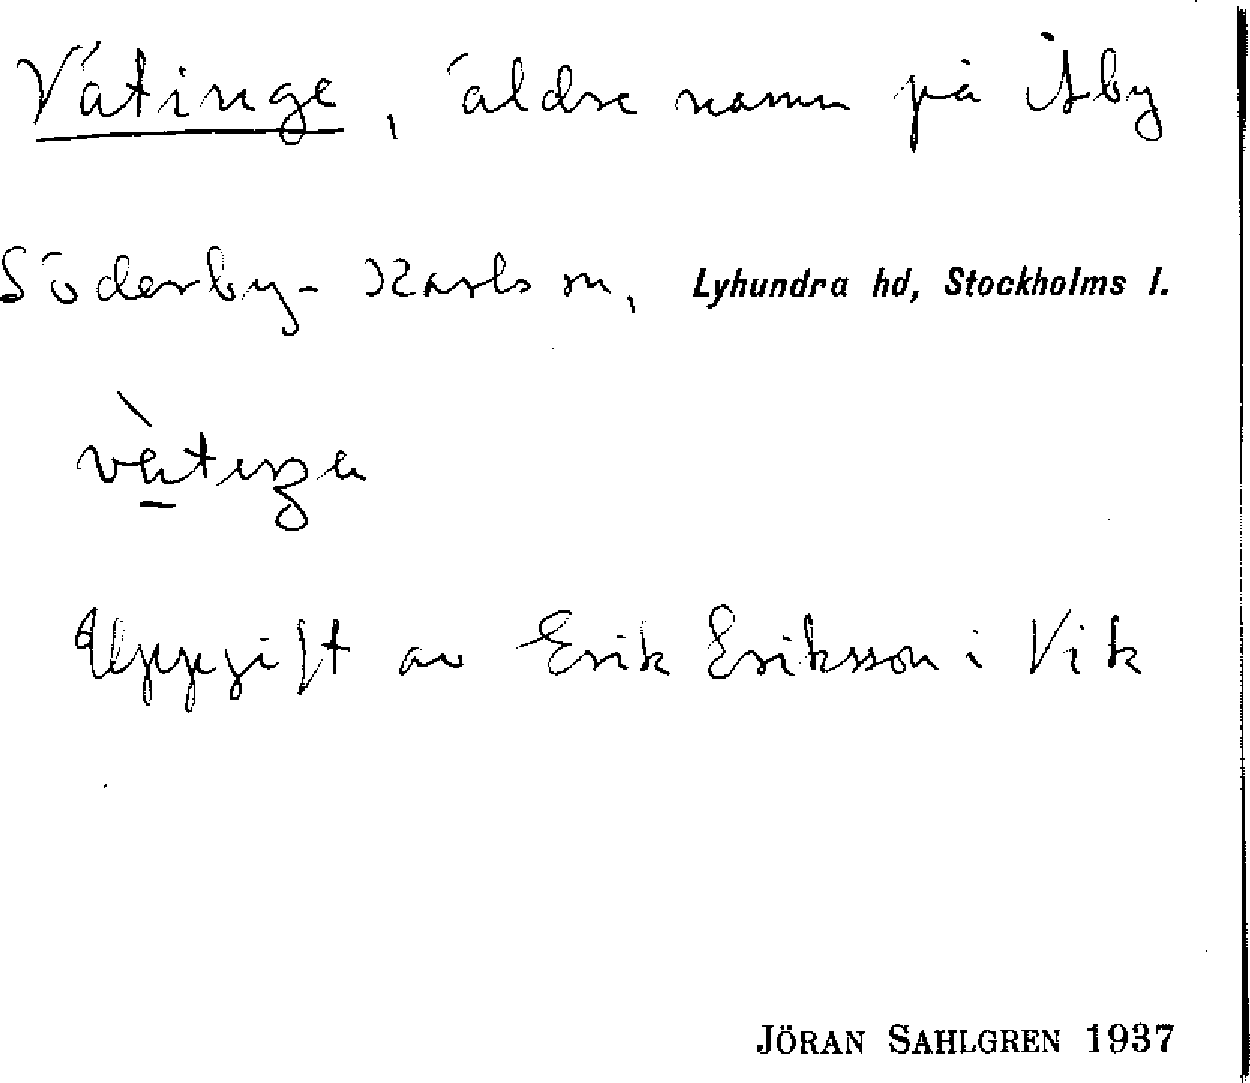 Vätinge, äldre namn på Åby
Söderby-Karls sn, Lyhundra hd, Stockholms l.
Uppgift av Erik Eriksson i Vik
JÖRAN SAHLGREN 1937